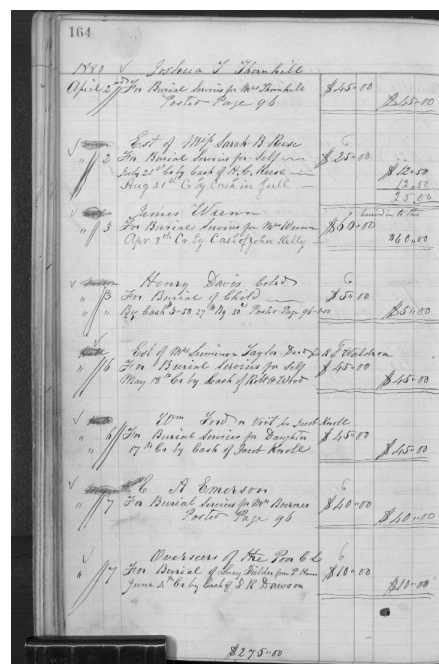 164
1880 Joshua T Thornhill
April 2nd For Burial Services for Mrs Thornhill $45.00
Posted Page 96 $45.00
Est of Miss Sarah B Reese
" 2 For Burial Services for Self $25.00
July 21st Cr by Cash of H. C. Reese $12.50
Aug 31st Cr By Cash in full 12.50
25.00
James Wrenn
" 3 For Burial Services for Mrs Wrenn $60.00
Apr 8th Cr by Cash of John Kelly $60.00
Henry Davis Cold
" 3 For Burial of Child $5.00
" " By Cash 3.50 27th By 50 Posted Page 96 $5.00
Est of Mrs Taylor Decd for Waldron
" 6 For Burial Services for Self $45.00
May 18th Cr by Cash of Robt H Wood $45.00
Wm Ford for Jacob Knoll
" 6 For Burial Services for Daughter $45.00
" 17th Cr by Cash of Jacob Knoll $45.00
E A Emerson
" 7 For Burial Services for Mrs $40.00
Posted Page 96 $40.00
Overseers of the Poor C L
" 7 For Burial of Lucy from $10.00
June 4th Cr by Cash of S R Dawson $10.00
$275.00